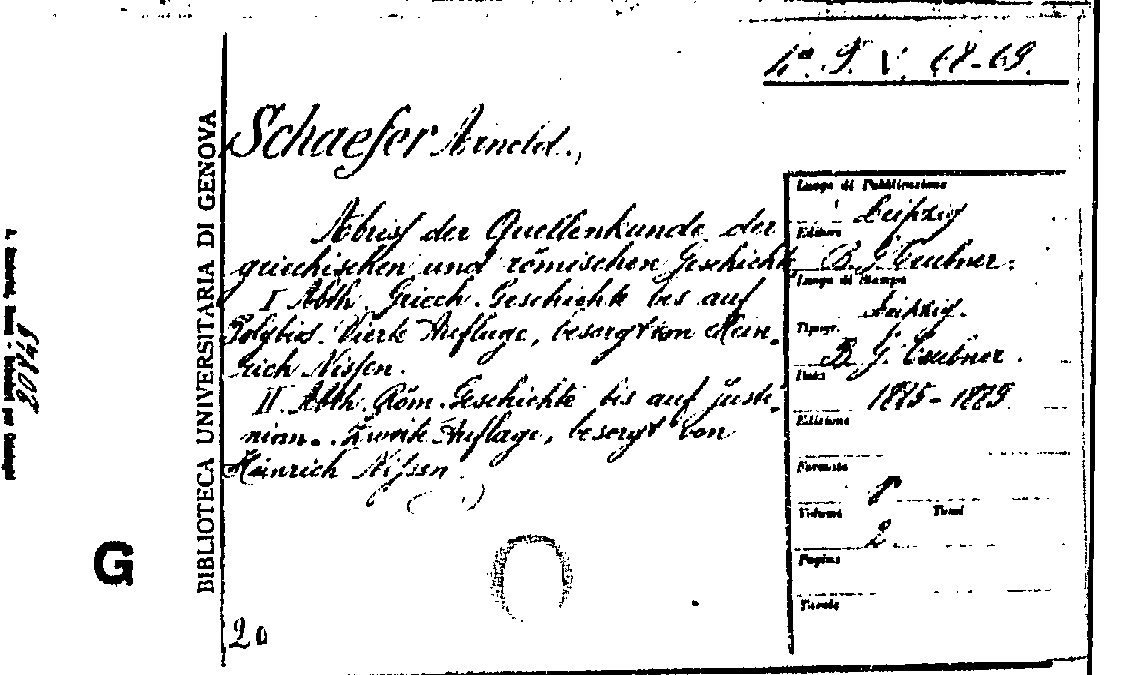 4ª. T. V. 68-69.
Schaefer Arnold.,
Abriss der Quellenkunde der
griechischen und römischen Geschichte
I Abth. Griech. Geschichte bis auf
Polybios. Vierte Auflage, besorgt von Hein-
rich Nissen.
II. Abth. Röm. Geschichte bis auf Justi-
nian. Zweite Auflage, besorgt von
Heinrich Nissen.
Luogo di Pubblicazione
Leipzig
Editore
B. G. Teubner.
Luogo di Stampa
Leipzig.
Tipogr.
B. G. Teubner.
Data
1885-1889
Edizione
Formato
8º
Volumi Tomi
2
Pagine
Tavole
BIBLIOTECA UNIVERSITARIA DI GENOVA
G
20